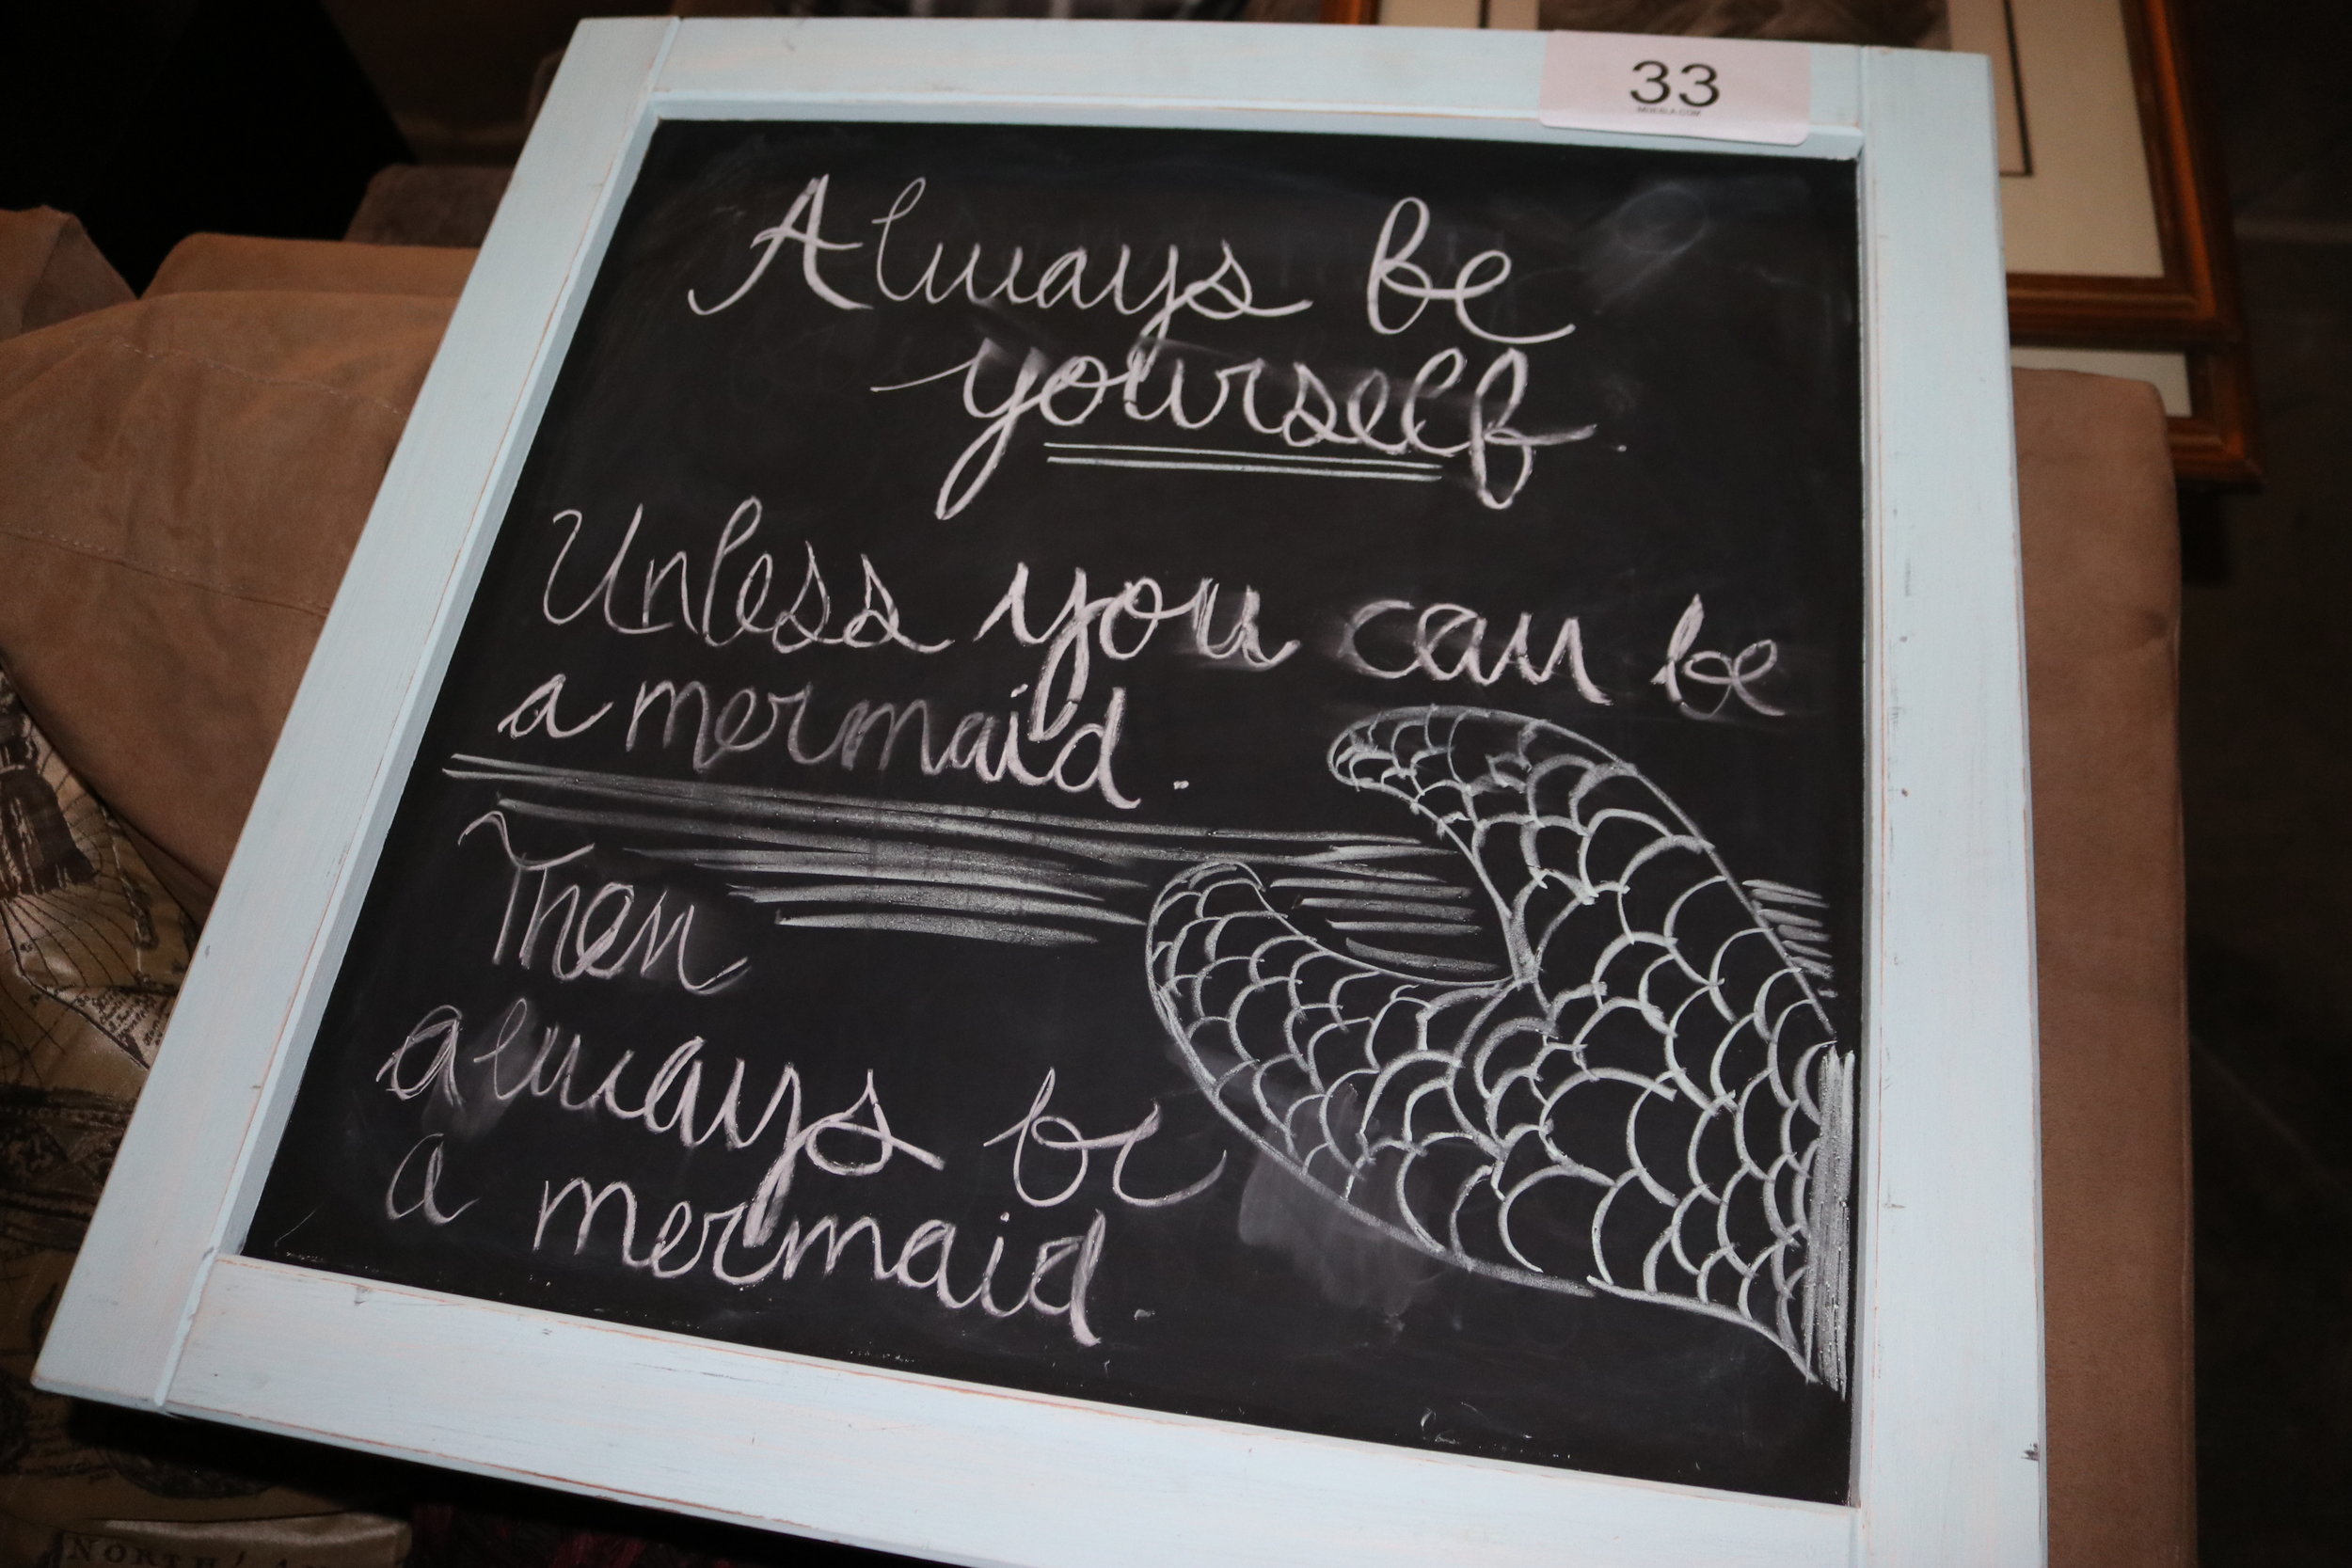 33
Always be
yourself.
Unless you can be
a mermaid.
Then
always be
a mermaid.